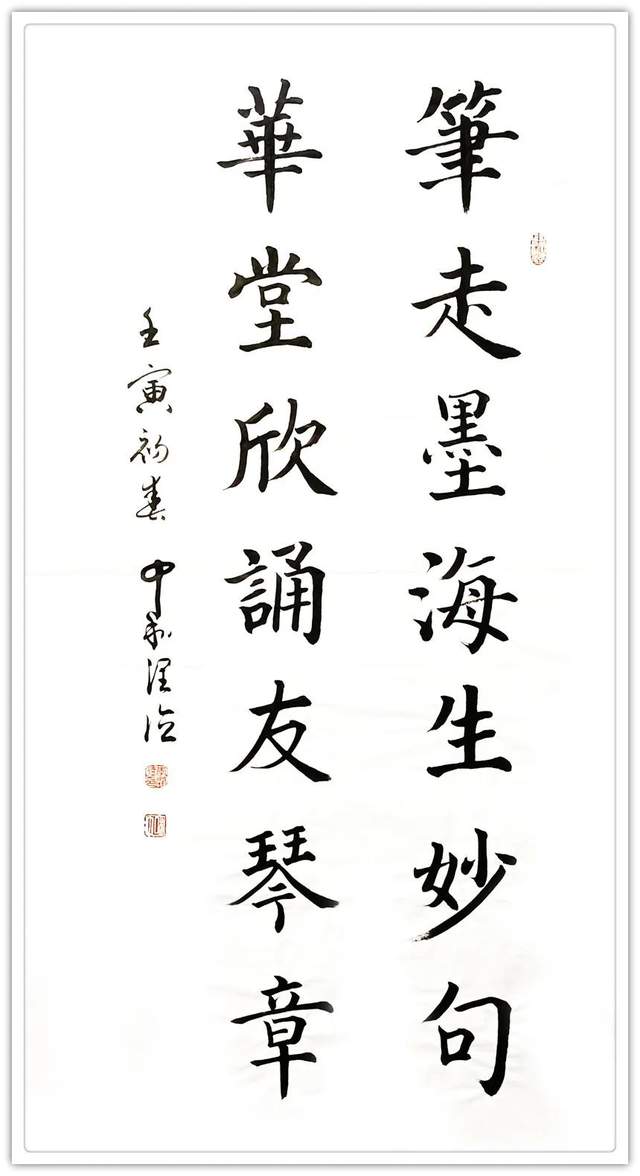 筆走墨海生妙句
華堂欣誦友琴章
壬寅初春